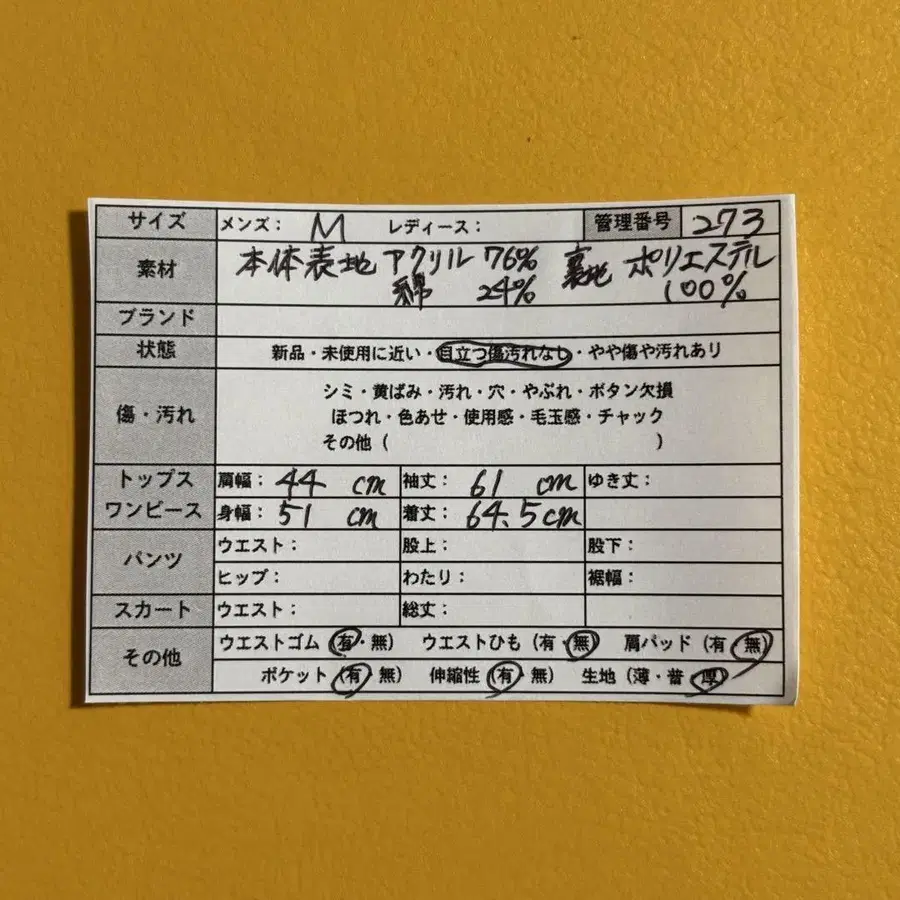 サイズ メンズ: M レディース: 管理番号 273
素材 本体表地 アクリル 76% 裏地 ポリエステル
綿 24% 100%
ブランド
状態 新品・未使用に近い・目立つ傷汚れなし・やや傷や汚れあり
傷・汚れ シミ・黄ばみ・汚れ・穴・やぶれ・ボタン欠損
ほつれ・色あせ・使用感・毛玉感・チャック
その他 ( )
トップス 肩幅: 44 cm 袖丈: 61 cm ゆき丈:
ワンピース 身幅: 51 cm 着丈: 64.5cm
パンツ ウエスト: 股上: 股下:
ヒップ: わたり: 裾幅:
スカート ウエスト: 総丈:
その他 ウエストゴム (有・無) ウエストひも (有・無) 肩パッド (有・無)
ポケット (有・無) 伸縮性 (有・無) 生地 (薄・普・厚)